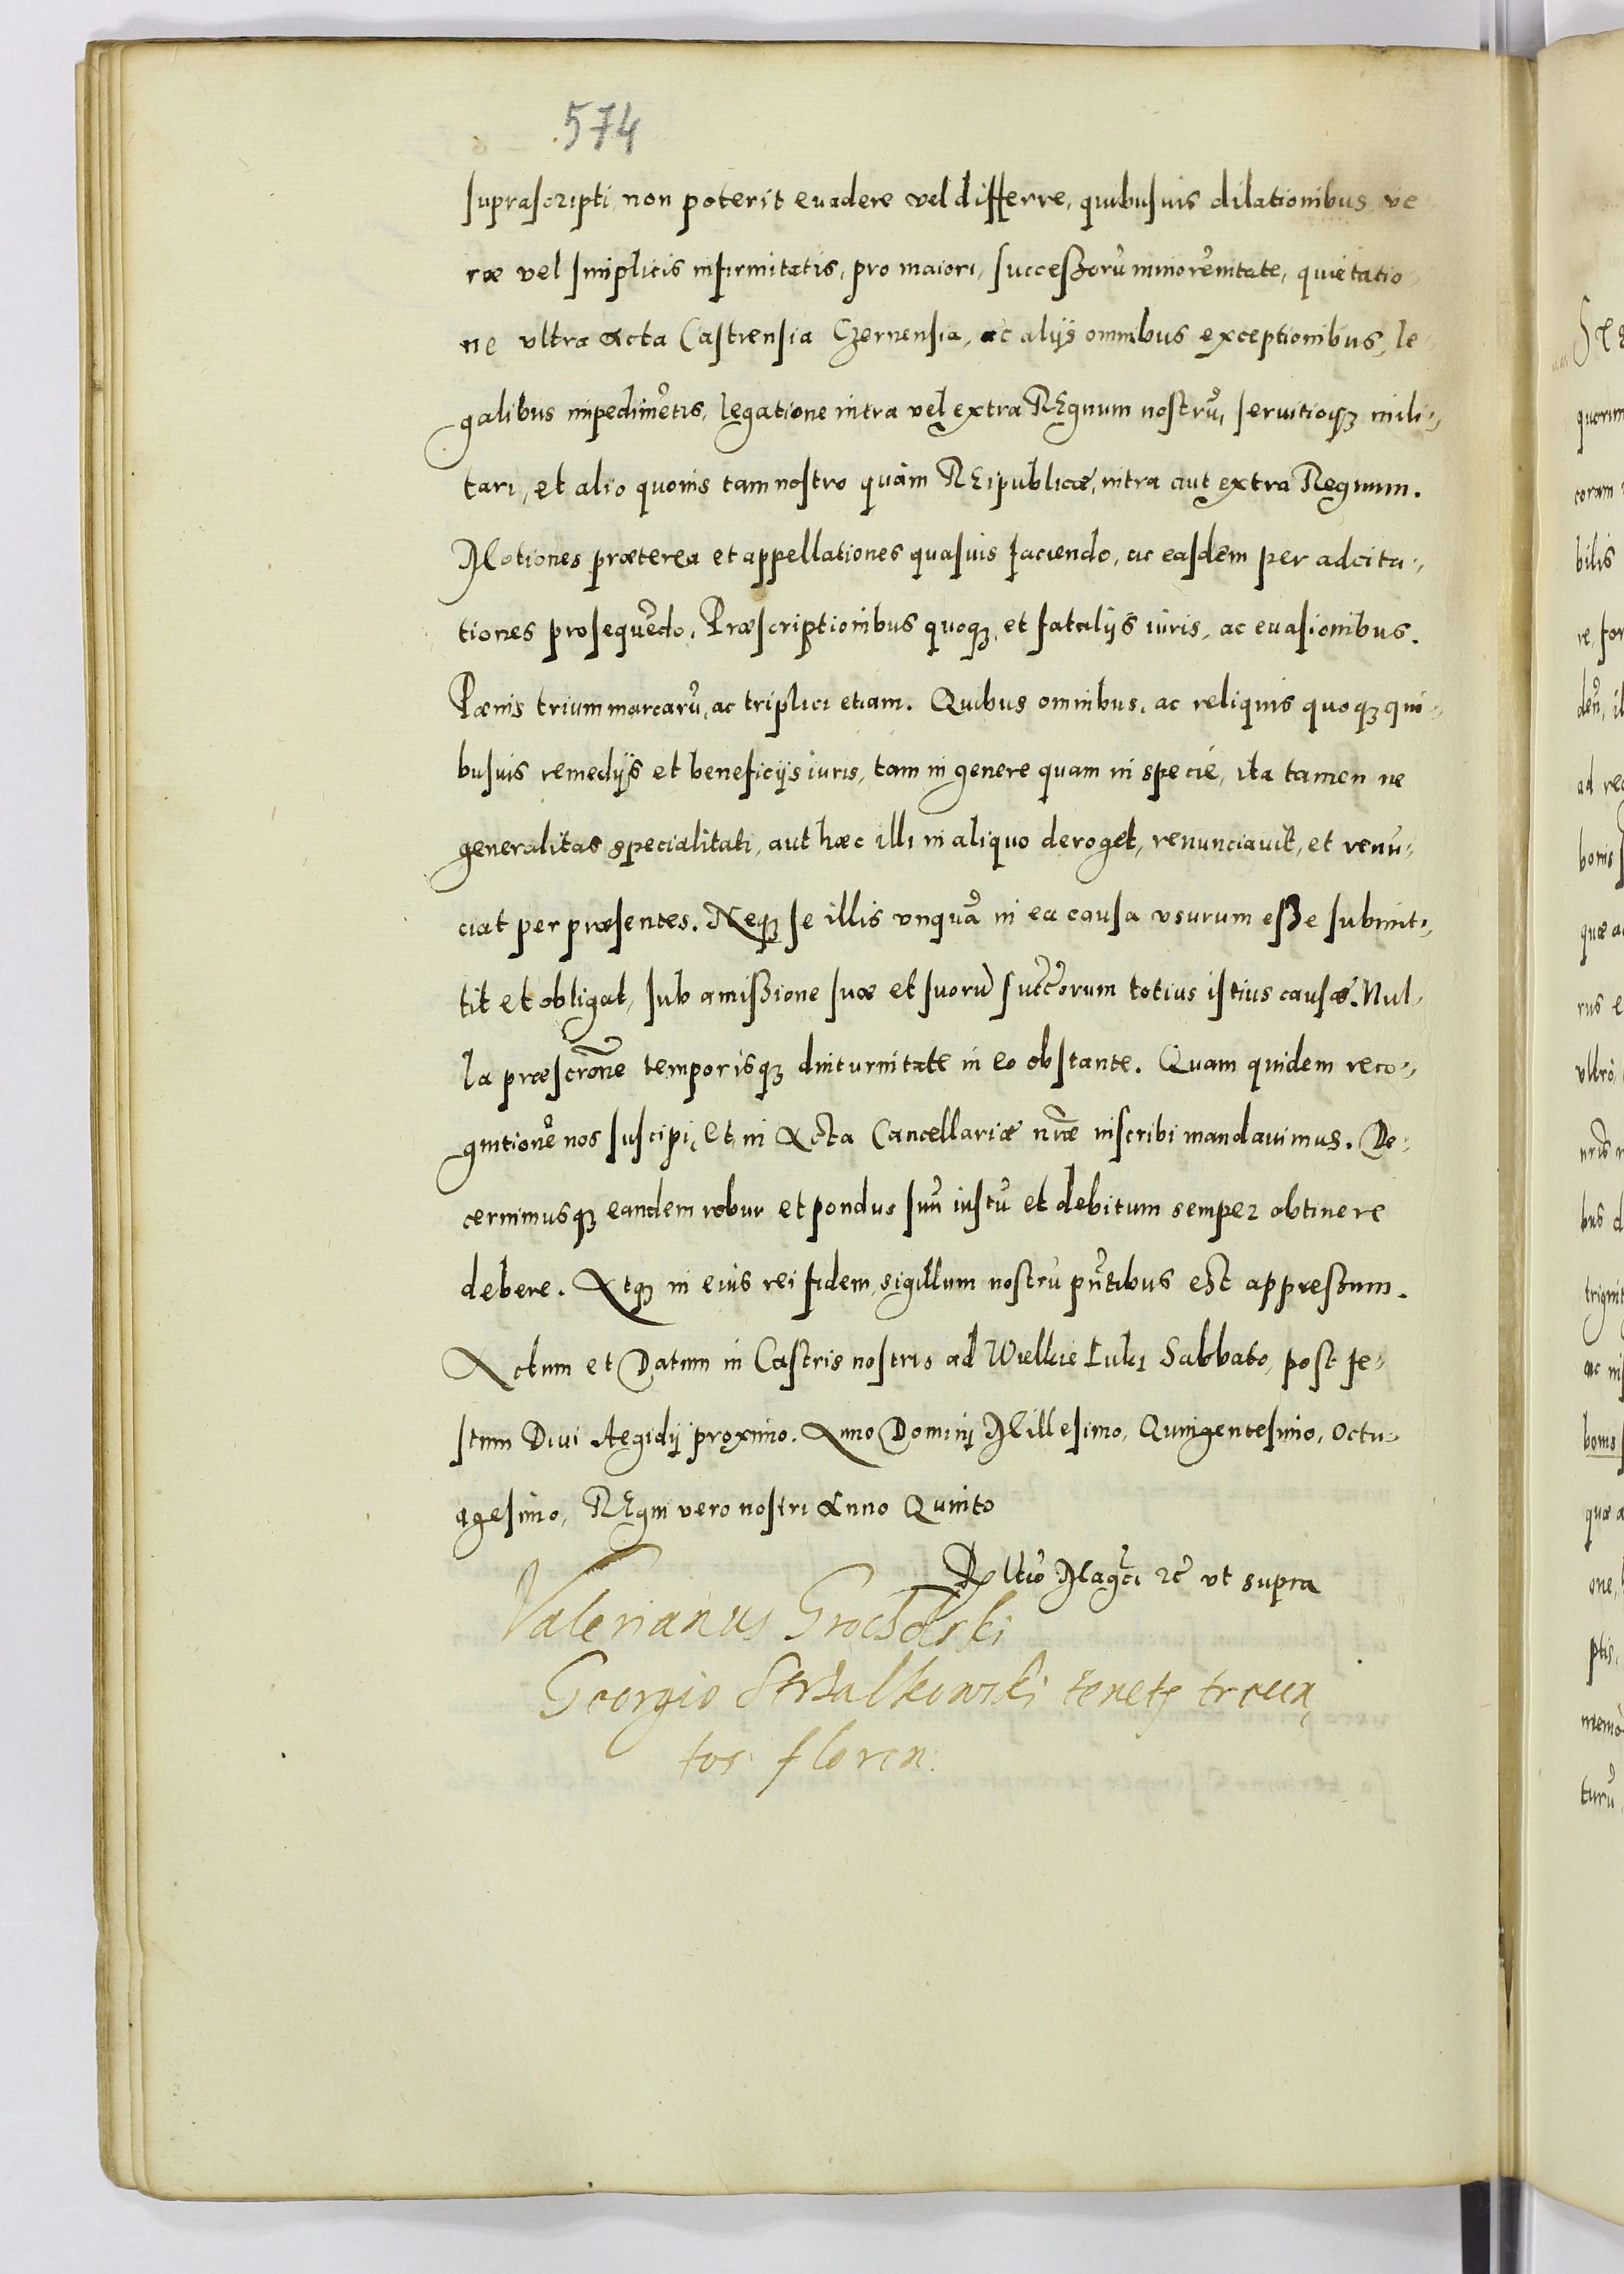 574
suprascripti non poterit euadere vel differre, quibusuis dilationibus ve
ræ vel simplicis infirmitatis, pro maiori, successorũ minorẽnitate, quietatio
ne vltra Acta Castrensia Czernensia, ac alijs omnibus exceptionibus, le
galibus impedimẽtis, legatione intra vel extra REgnum nostrũ, seruitioq; mili-
tari, et alio quouis tam nostro quàm REipublicæ, intra aut extra Regnum.
Motiones præterea et appellationes quasuis faciendo, ac easdem per adcita-
tiones prosequẽdo, Præscriptionibus quoq;, et fatalijs iuris, ac euasionibus.
Pænis trium marcarũ, ac triplici etiam. Quibus omnibus, ac reliquis quoq; qui-
busuis remedijs et beneficijs iuris, tam in genere quam in specie, ita tamen ne
generalitas specialitati, aut hæc illi in aliquo deroget, renunciauit, et renũ-
ciat per præsentes. Neq; se illis vnquã in ea causa vsurum esse submit-
tit et obligat, sub amissione suæ et suorũ succorum totius istius causæ. Nul-
la præscrõne temporisq; diuturnitate in eo obstante. Quam quidem reco-
gnitionẽ nos suscipi, et in Acta Cancellariæ nræ inscribi mandauimus. De-
cernimusq; eandem robur et pondus suũ iustũ et debitum semper obtinere
debere. Atq; in eius rei fidem, sigillum nostrũ pñtibus est appressum.
Actum et Datum in Castris nostris ad Wielkie Łuki Sabbato, post fe-
stum Diui Aegidij proximo. Anno Domini Millesimo, Quingentesimo, Octu-
agesimo, REgni vero nostri Anno Quinto
Rltio Magci etc vt supra
Valerianus Grocholski
Georgio Strzalkowski tenetr trecen,
tos floren: